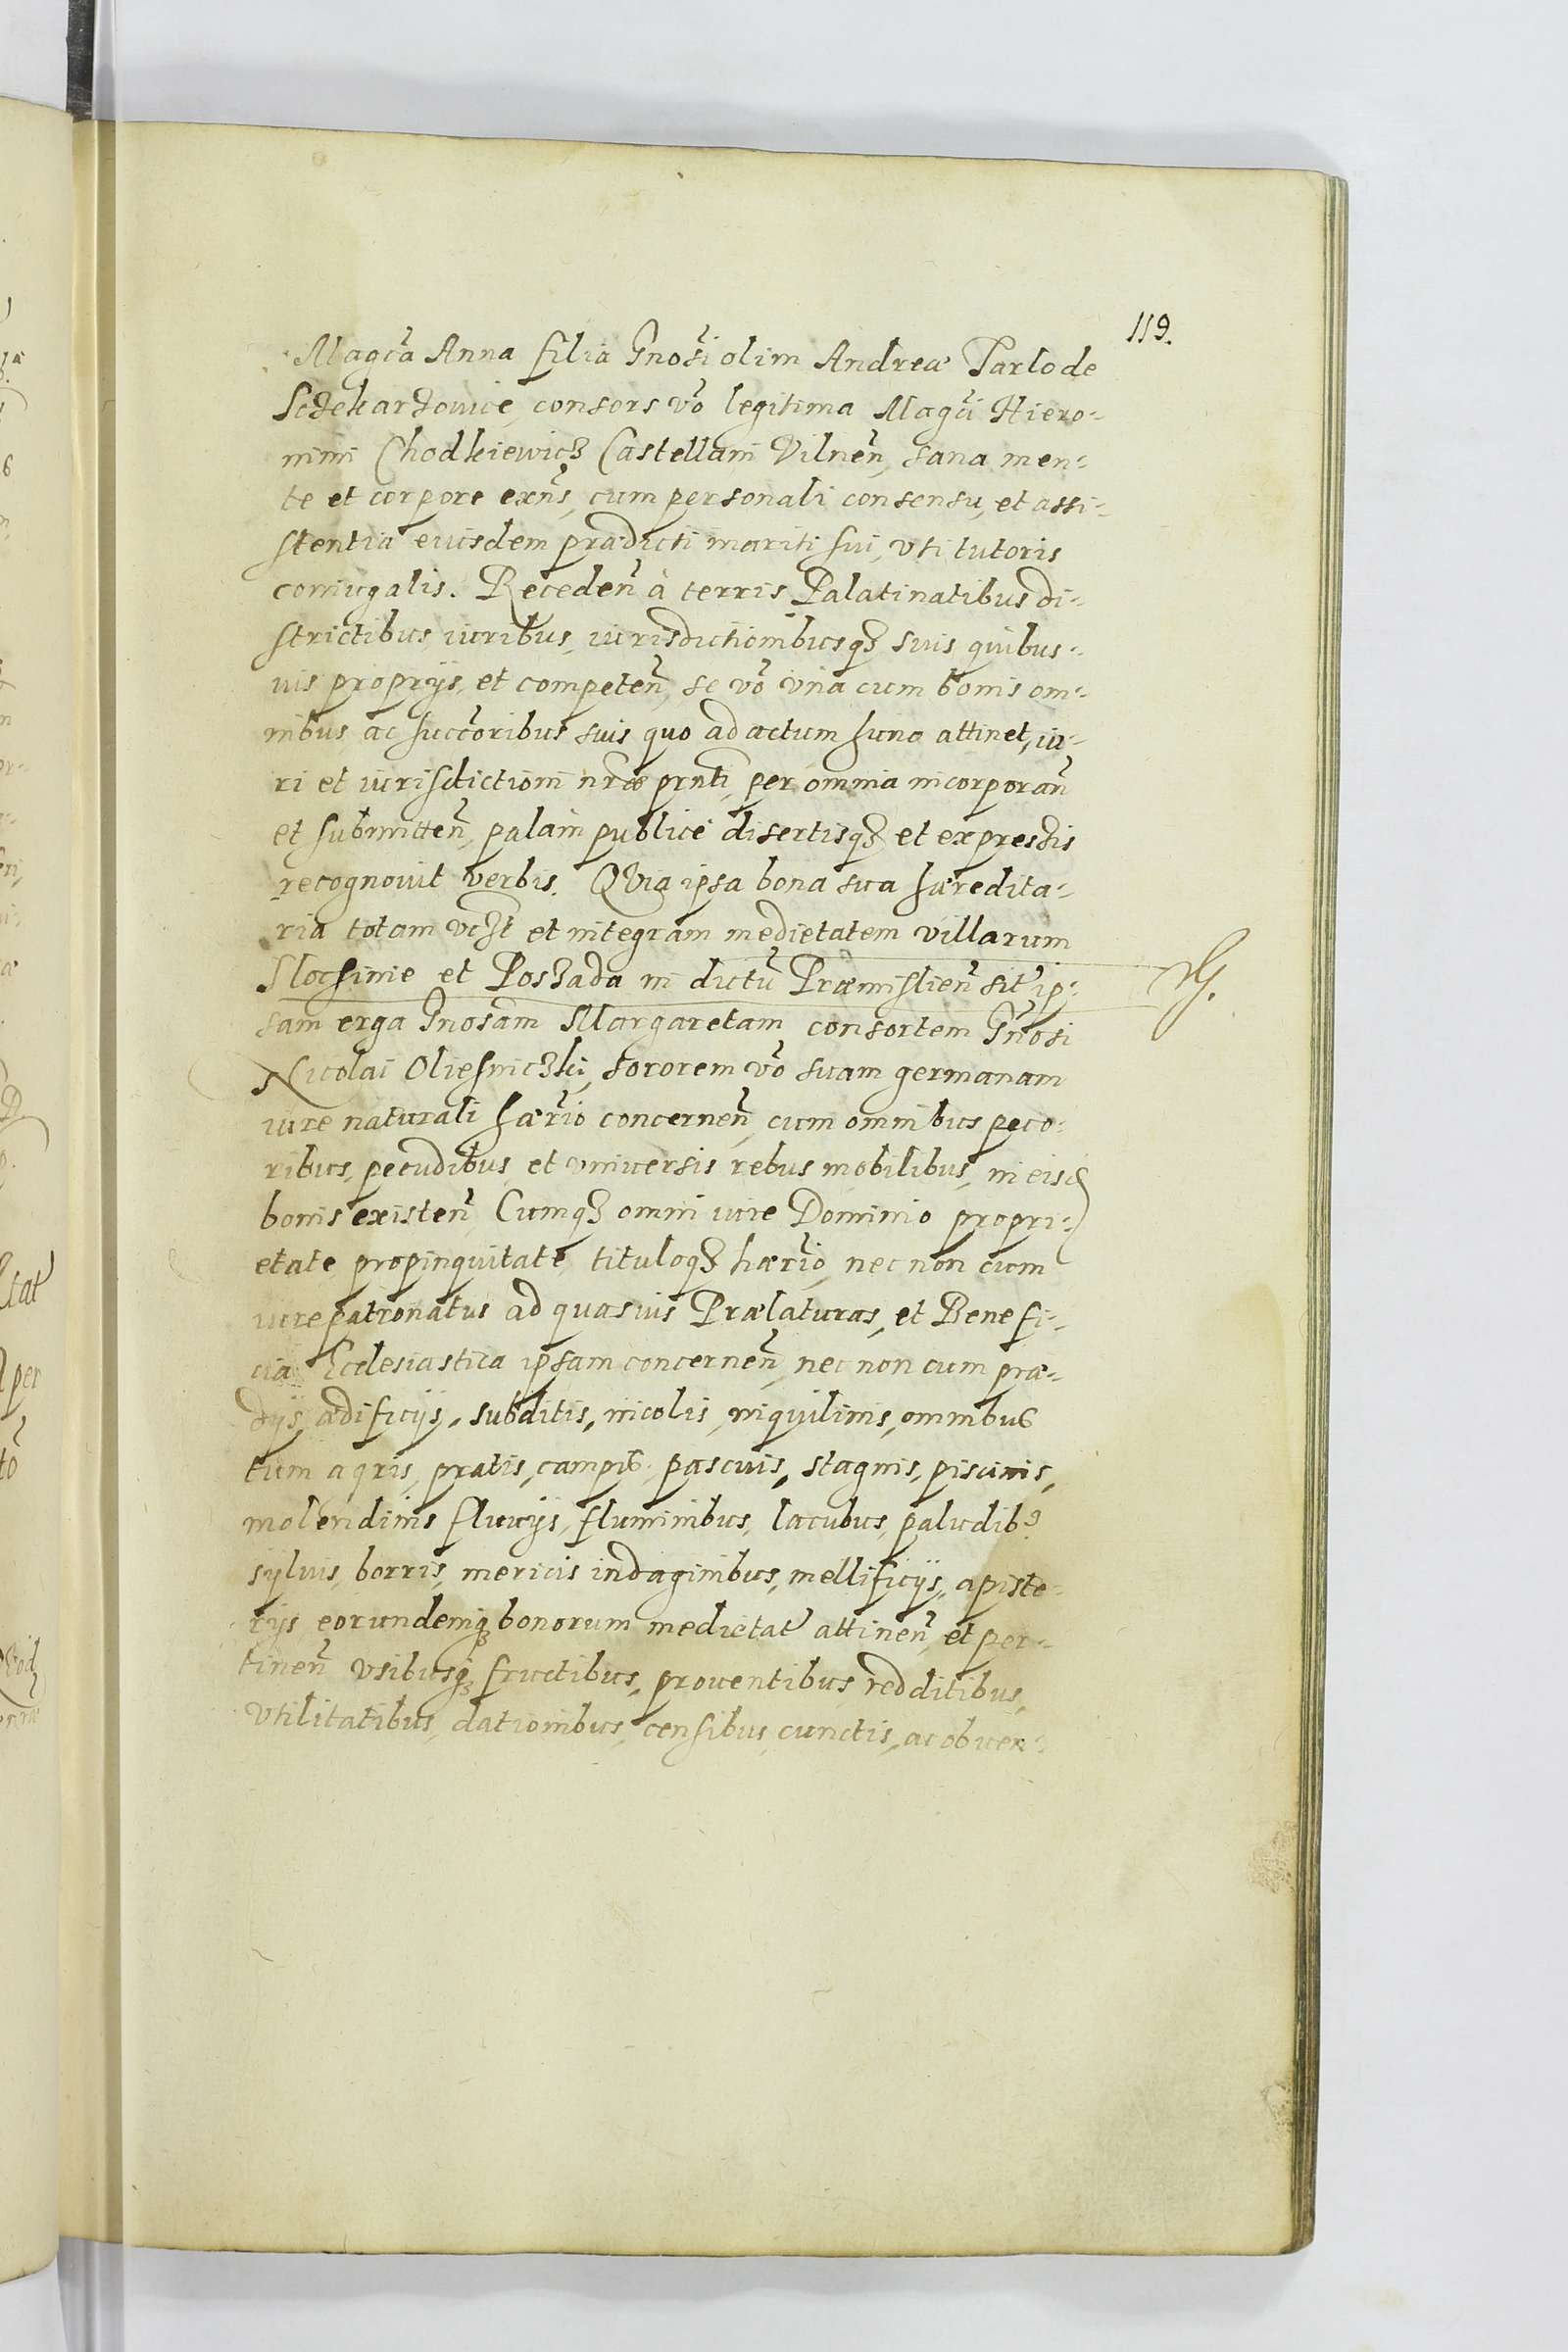 119.
Magc̃a Anna filia Gnosĩ olim Andreæ Tarlo de
Sczekarzowice, consors võ legitima Magc̃i Hiero-
nimi Chodkiewicz Castellani Vilneñ, sana men-
te et corpore exñs, cum personali consensu, et assi-
stentia eiusdem prædicti mariti sui, vti tutoris
coniugalis. Recedeñ à terris Palatinatibus di-
strictibus iuribus, iurisdictionibusqȝ suis quibus-
uis proprijs, et competeñ, se võ vna cum bonis om-
nibus ac succ̃oribus suis quo ad actum hunc attinet, iu-
ri et iurisdictioni nræ prñti, per omnia incorporañ
et submitteñ, palam publicè disertisqȝ et expressis
recognouit verbis. QVia ipsa bona sua hæredita-
ria totam vcȝt et integram medietatem villarum
Slochinie et Poszada in dictũ Præmislieñ sit̃ ip-
sam erga Gnosam Margaretam consortem Gnosi
Nicolai Oliesniczki, sororem võ suam germanam
iure naturali hærĩo concerneñ, cum omnibus peco-
ribus, pecudibus, et vniuersis rebus mobilibus, in eisd
bonis existeñ, Cumqȝ omni iure Dominio propri-
etate propinquitate, tituloqȝ hærĩo, nec non cum
iure patronatus ad quasuis Prælaturas, et Benefi-
cia Ecclesiastica ipsam concerneñ, nec non cum præ-
dijs, ædificijs, subditis, incolis, inquilinis, omnibus
tum agris, pratis, campis, pascuis, stagnis, piscinis,
molendinis fluuijs, fluminibus, lacubus, paludibꝰ
syluis, borris, mericis indaginibus, mellificijs, apiste-
rijs eorundemqȝ bonorum medietat̃ attineñ, et per-
tineñ vsibusqȝ fructibus, prouentibus redditibus,
Vtilitatibus, dationibus, censibus, cunctis, ac obuen-